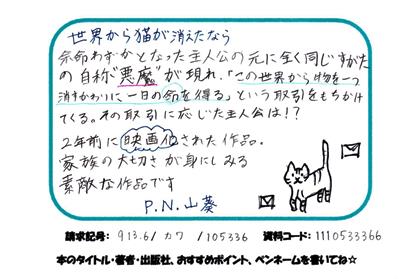 世界から猫が消えたなら
余命わずかとなった主人公の元に全く同じすがた
の自称"悪魔"が現れ、「この世界から物を一つ
消すかわりに一日の命を得る」という取引をもちかけ
てくる。その取引に応じた主人公は!?
2年前に映画化された作品。
家族の大切さが身にしみる
素敵な作品です
P.N.山葵
請求記号: 913.6/カワ /105336 資料コード: 1110533366
本のタイトル・著者・出版社、おすすめポイント、ペンネームを書いてね☆